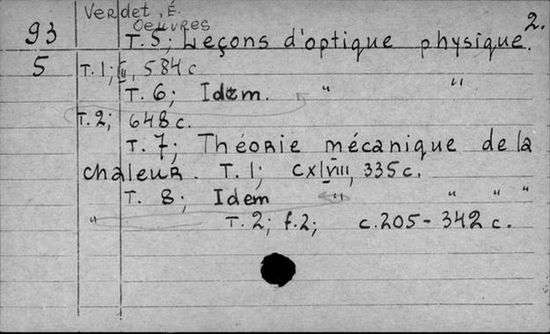 Verdet, É. 2.
Oeuvres
93 T. 5; Leçons d'optique physique.
5 T. 1; II, 584 c
T. 6; Idem. " "
T. 2; 648 c.
T. 7; Théorie mécanique de la
chaleur. T. 1; CXLVIII, 335 c.
T. 8; Idem " " " "
" T. 2; f. 2; c. 205-342 c.